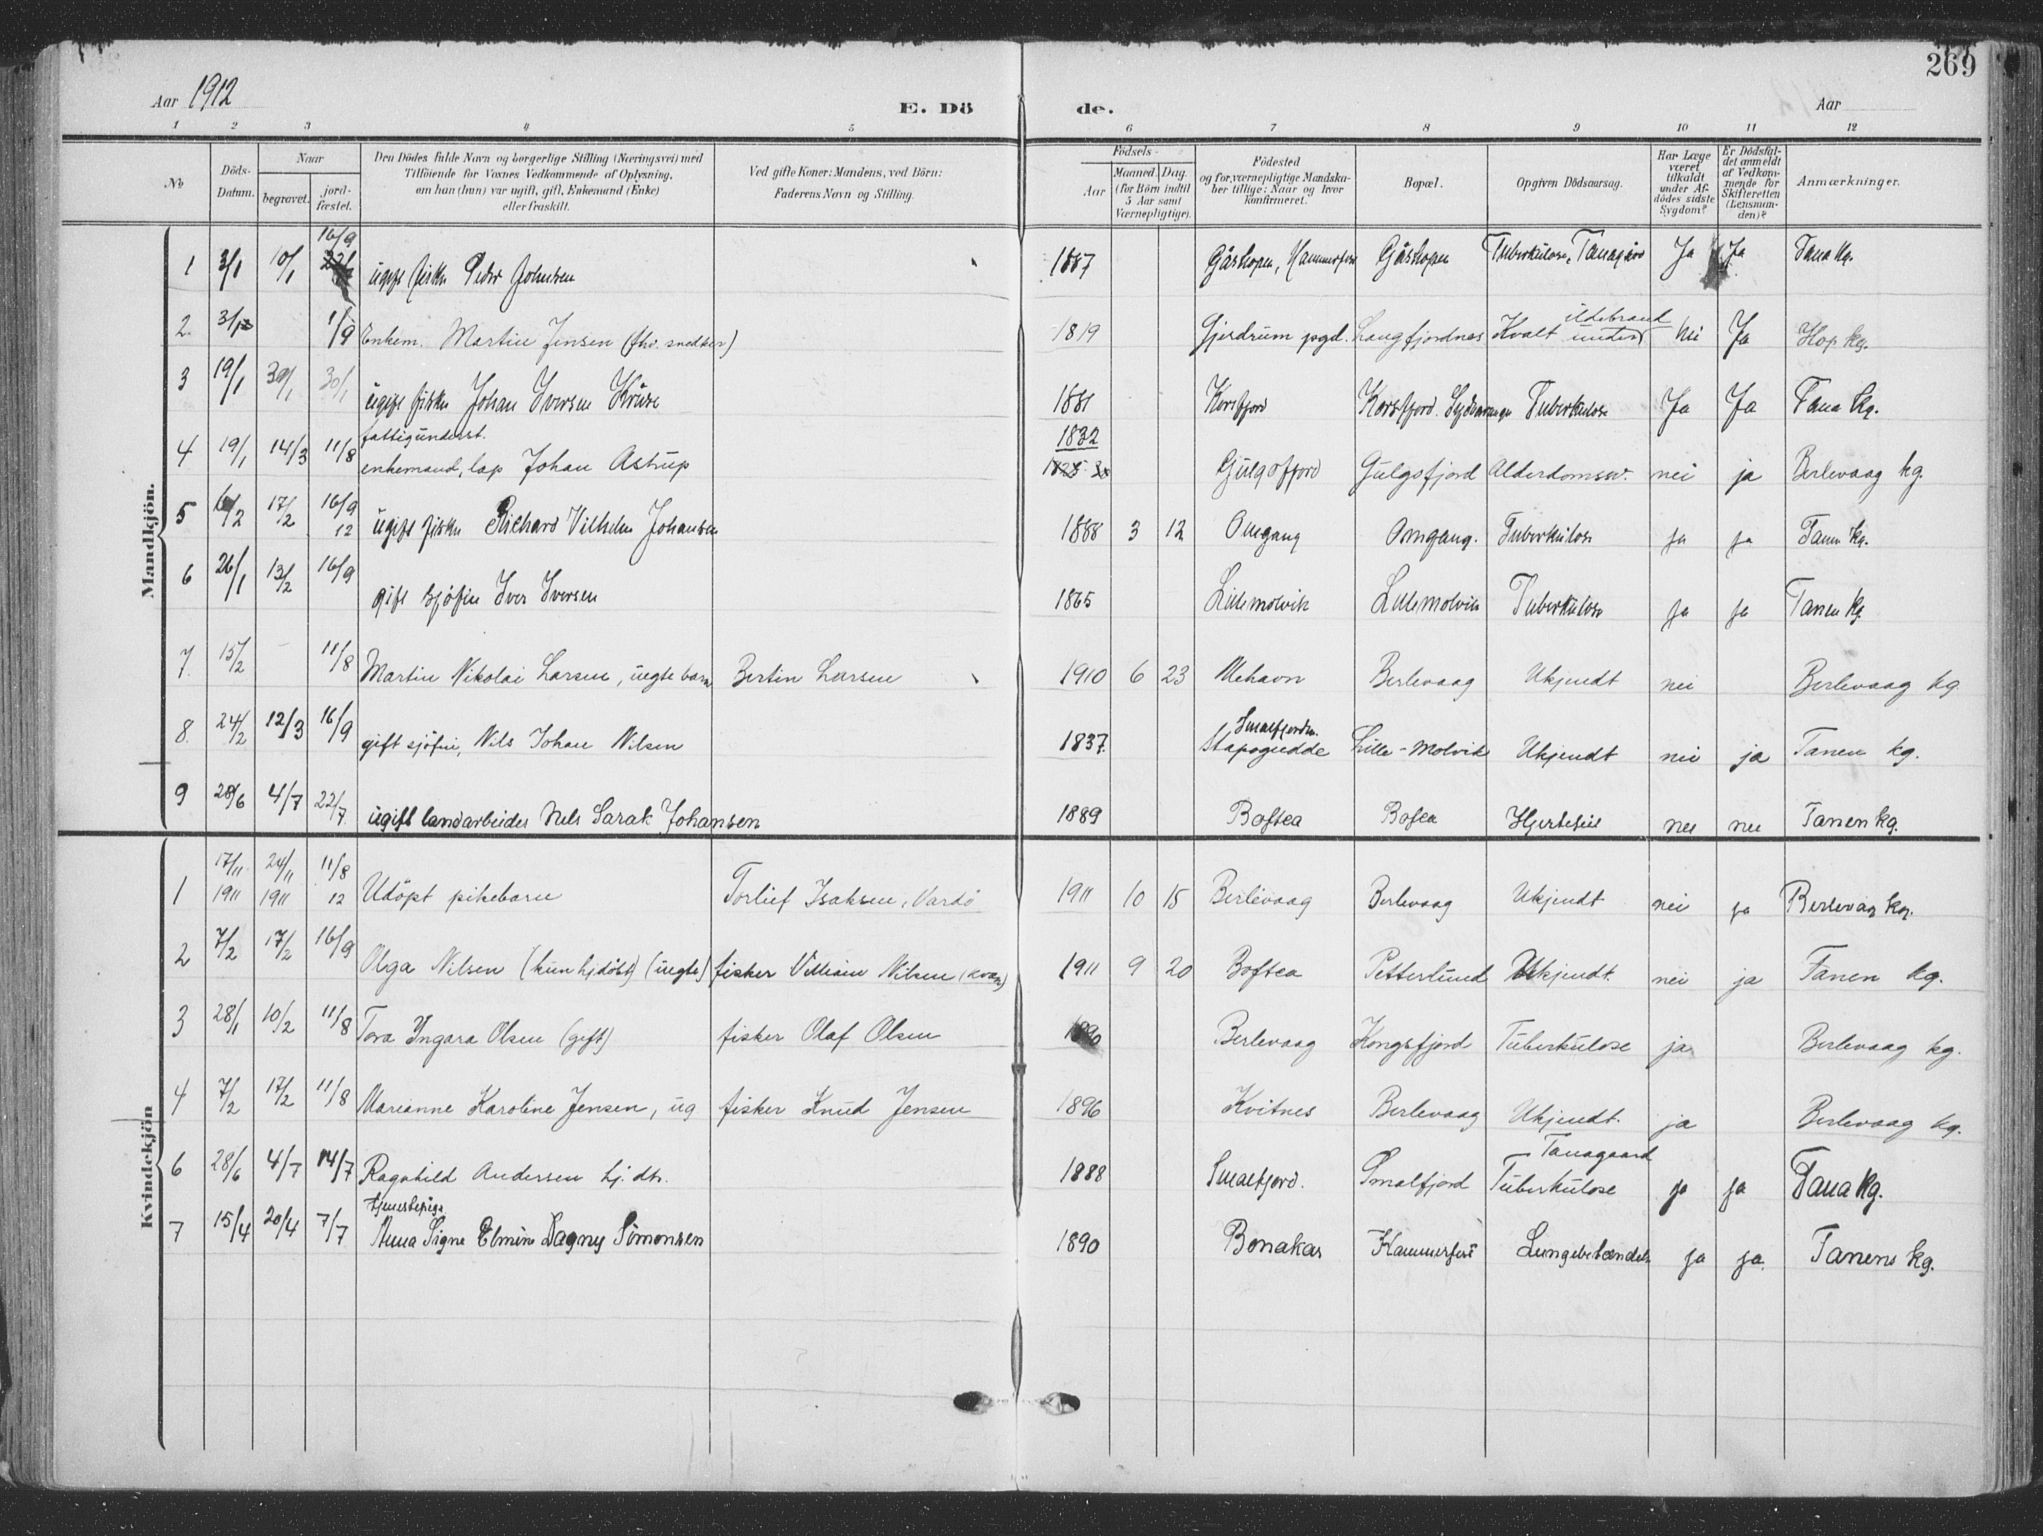 269
Aar 1912
E. Dö
de.
Aar
1 2 3 4 5 6 7 8 9 10 11 12
No
Döds-Datum.
Naar
begravet.
jord-fæstet.
Den Dödes fulde Navn og borgerlige Stilling (Næringsvei) med
Tilföiende for Voxnes Vedkommende af Oplysning,
om han (hun) var ugift, gift, Enkemand (Enke)
eller fraskilt.
Ved gifte Koner: Mandens, ved Börn:
Faderens Navn og Stilling.
Födsels-
Aar
Maaned. Dag.
(for Börn indtil
5 Aar samt
Værnepligtige).
Födested
og for værnepligtige Mandska-
ber tillige: Naar og hvor
konfirmeret.
Bopæl.
Opgiven Dödsaarsag.
Har Læge
været
tilkaldt
under Af-
dödes sidste
Sygdom?
Er Dödsfal-
det anmeldt
af Vedkom-
mende for
Skifteretten
(Lensman-
den)?
Anmærkninger.
Mandkjön.
1 3/1 10/1 16/9 ugift fisker Peder Johnsen 1887 Gåshopen, Hammerfest Gåshopen Tuberkulose, Tanagård Ja Ja Tana kg.
2. 3/12 1/9 Enkem. Martin Jensen (fhv. snedker) 1819 Gjerdrum pgd. Langfjordnes Kvalt under ildebrand nei Ja Hop kg.
3 19/1 30/1 30/1 ugift fisker Johan Iversen Kruse 1881 Korsfjord Korsfjord. Sydvaranger Tuberkulose Ja Ja Tana kg.
4 19/1 14/3 11/8 fattigunderst.
enkemand, lap Johan Astrup 1832 Gulgofjord Gulgofjord Alderdomssv. nei ja Berlevaag kg.
5 6/2 17/2 16/9 12 ugift fisker Richard Vilhelm Johansen 1888 3 12 Omgang Omgang. Tuberkulose ja ja Tanen kg.
6 26/1 13/2 16/9 gift sjöfin Iver Iversen 1865 Lillemolvik Lillemolvik Tuberkulose ja ja Tanen kg.
7. 15/2 - 11/8 Martin Nikolai Larsen, uegte barn Bertin Larsen 1910 6 23 Mehavn Berlevaag Ukjendt nei Berlevaag kg
8. 24/2 12/3 16/9 gift sjöfin, Nils Johan Nilsen 1837. Smalfjorden.
Stapogiedde Lille-Molvik Ukjendt nei ja Tanen kg.
9 28/6 4/7 22/7. ugift landarbeider Nils Sarak Johansen 1889 Boftea Bofea Hjertefeil nei nei Tanen kg.
Kvindekjön
1 17/11 1911 24/11 1911 11/8 12 Udöpt pikebarn Torlief Isaksen, Vardö 1911 10 15 Berlevaag Berlevaag Ukjendt nei ja Berlevåg kg.
2 7/2 17/2 16/9 Olga Nilsen (kun hjdöbt) (uegte) fisker Villiam Nilsen (kvæn) 1911 9 20 Boftea Petterlund Ukjendt. nei ja Tanen kg.
3 28/1 10/2 11/8 Tora Ingara Olsen (gift) fisker Olaf Olsen Berlevaag Kongsfjord Tuberkulose ja Berlevaag kg.
4 7/2 17/2 11/8 Marianne Karoline Jensen, ug fisker Knud Jensen 1896 Kvitnes Berlevaag Ukjendt. ja Berlevaag kg.
6 28/6 4/7 14/7 Ragnhild Andersen hj. dtr. 1888 Smalfjord. Smalfjord Tanagaard
Tuberkulose ja ja Tana kg.
7 15/4 20/4 7/7 tjenestepige
Anna Signe Elmine Dagny Simonsen 1890 Bonakas Hammerfest Lungebetændelse ja ja. Tanens kg.